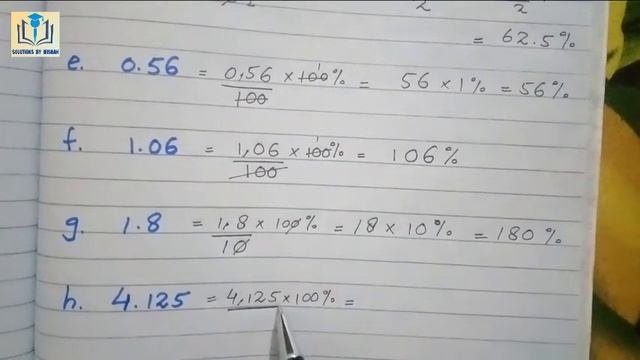 SOLUTIONS BY BISBAH
2 2
= 62.5%
e. 0.56 = 0,56 × 100% / 100 = 56 × 1% = 56%
f. 1.06 = 1,06 × 100% / 100 = 106%
g. 1.8 = 1,8 × 100% / 10 = 18 × 10% = 180%
h. 4.125 = 4,125 × 100% =